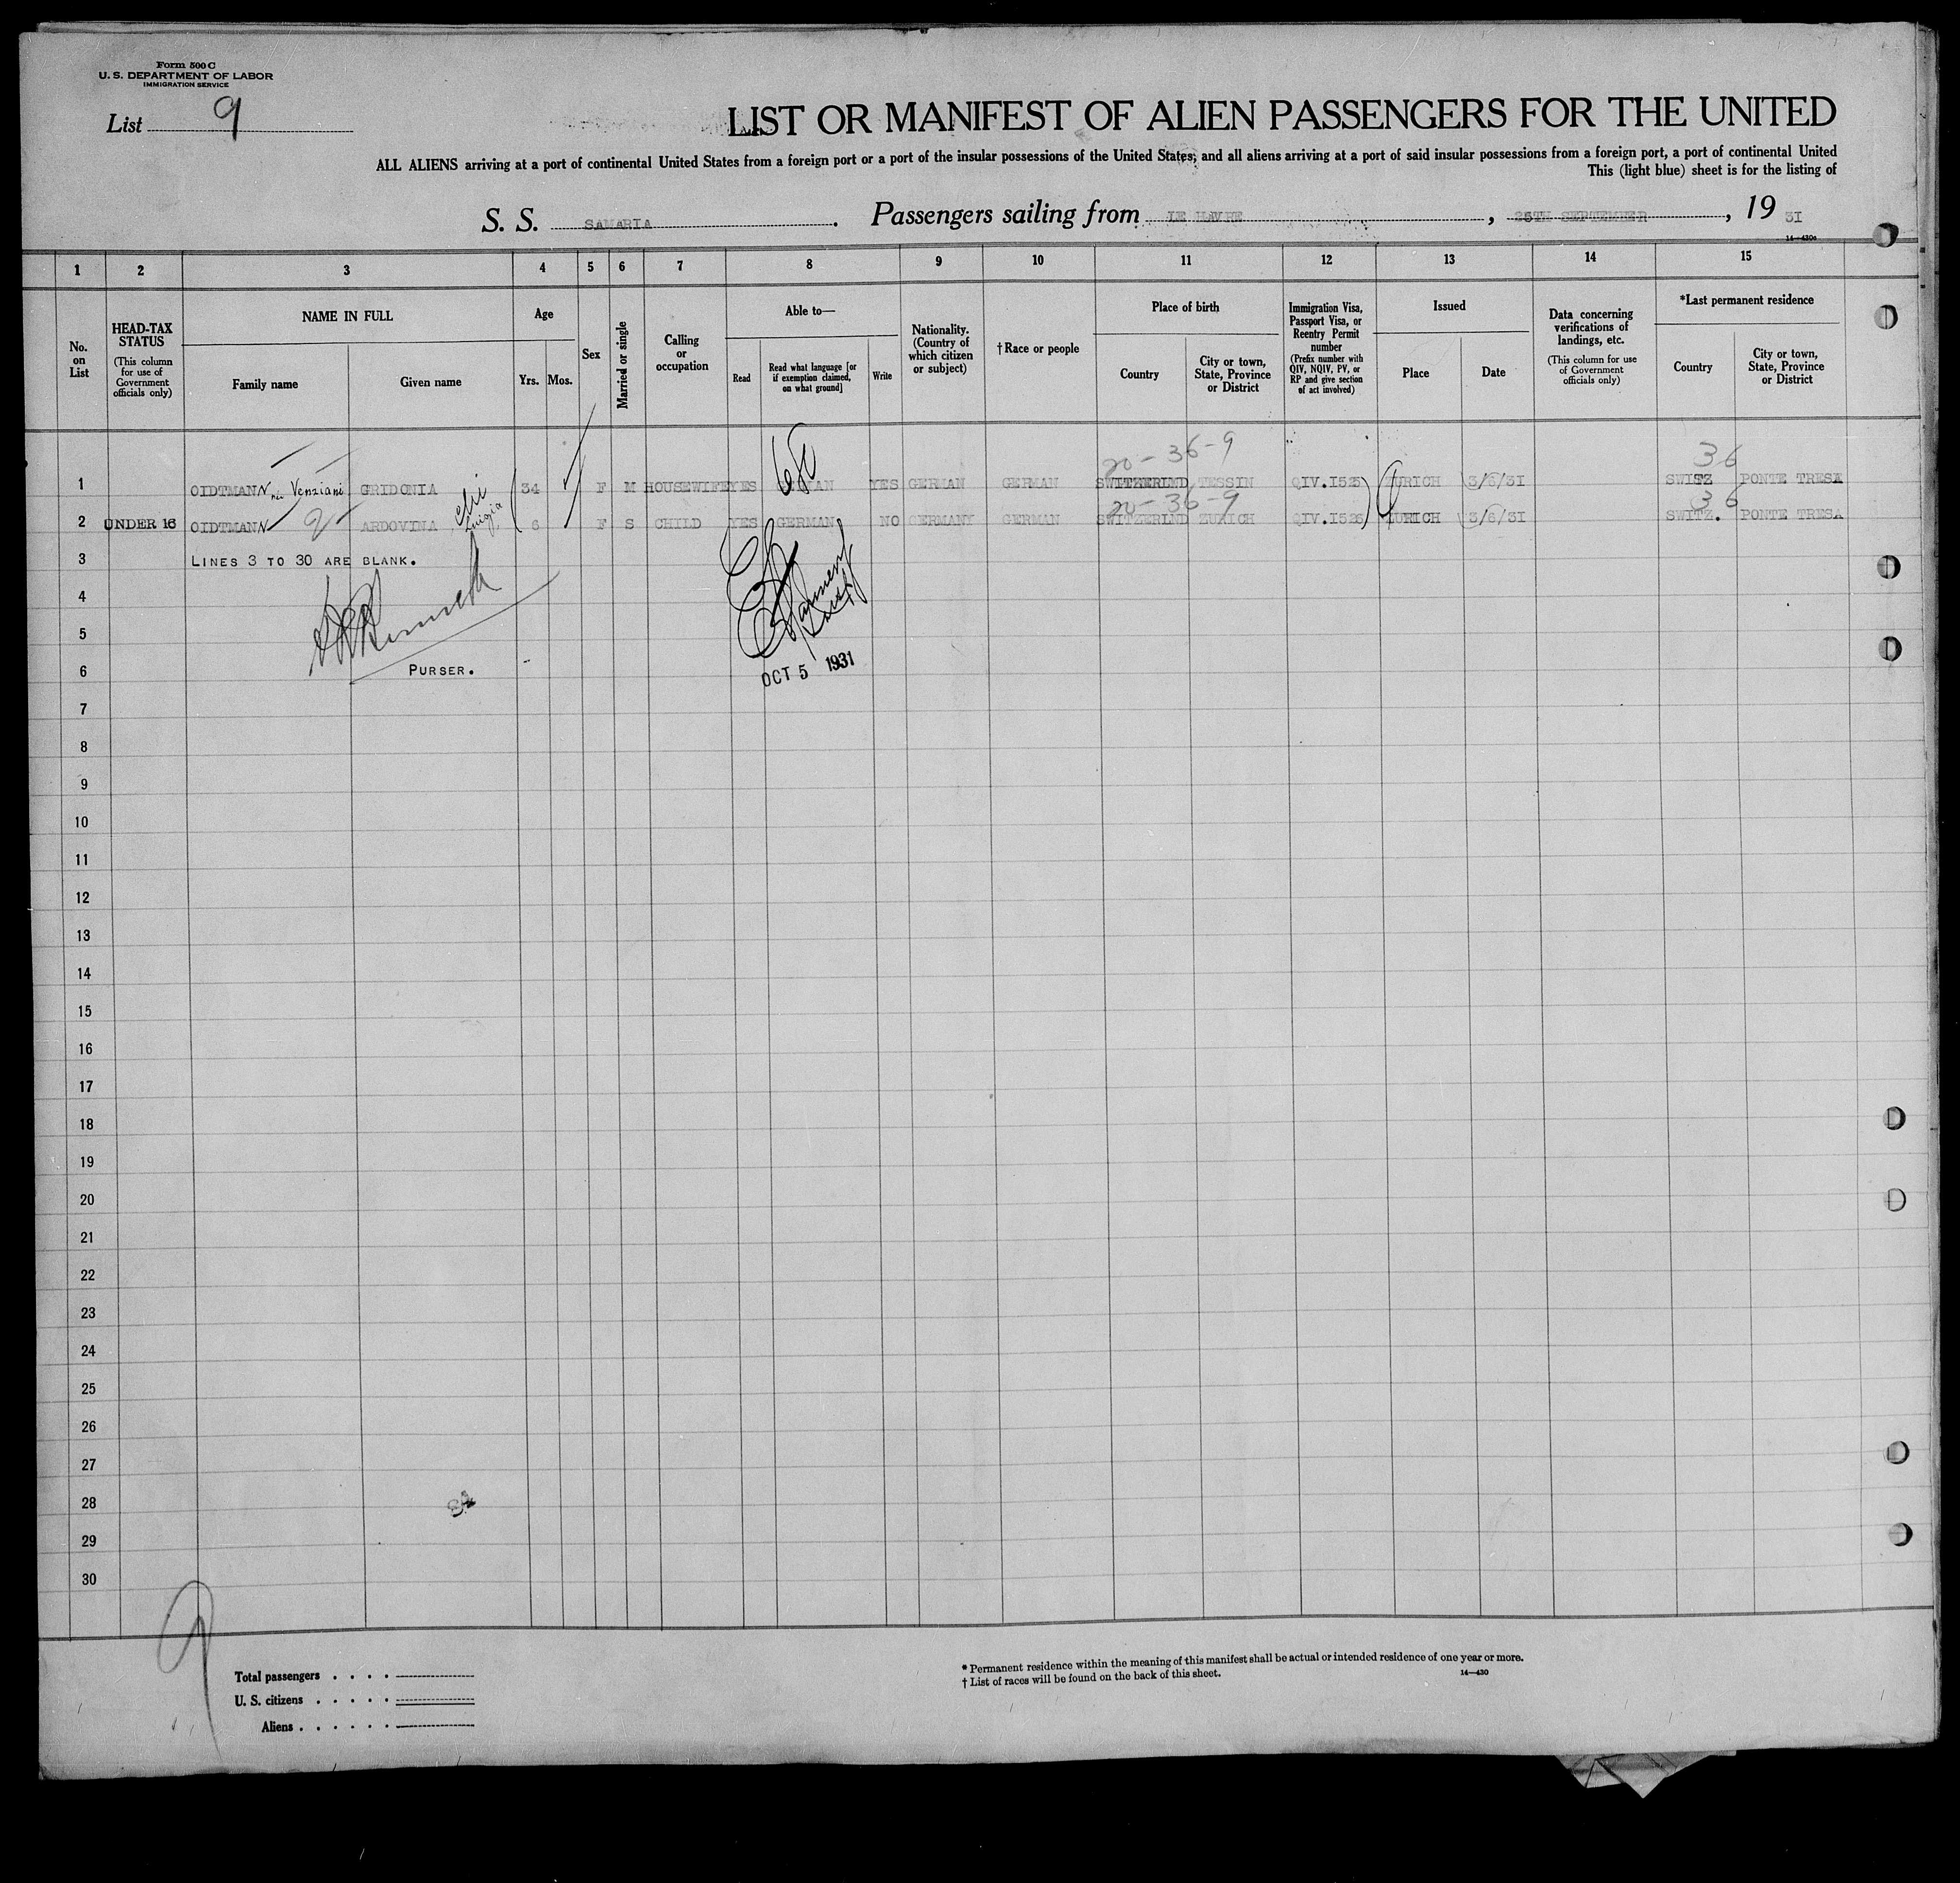 Form 500 C
U. S. DEPARTMENT OF LABOR
IMMIGRATION SERVICE
List 9
LIST OR MANIFEST OF ALIEN PASSENGERS FOR THE UNITED
ALL ALIENS arriving at a port of continental United States from a foreign port or a port of the insular possessions of the United States, and all aliens arriving at a port of said insular possessions from a foreign port, a port of continental United
This (light blue) sheet is for the listing of
S. S. SAMARIA. Passengers sailing from LE HAVRE, 25TH SEPTEMBER, 1931
14—430a
1 2 3 4 5 6 7 8 9 10 11 12 13 14 15
No. on List
HEAD-TAX STATUS (This column for use of Government officials only)
NAME IN FULL
Family name
Given name
Age
Yrs.
Mos.
Sex
Married or single
Calling or occupation
Able to—
Read
Read what language [or if exemption claimed, on what ground]
Write
Nationality. (Country of which citizen or subject)
†Race or people
Place of birth
Country
City or town, State, Province or District
Immigration Visa, Passport Visa, or Reentry Permit number (Prefix number with QIV, NQIV, PV, or RP and give section of act involved)
Issued
Place
Date
Data concerning verifications of landings, etc. (This column for use of Government officials only)
*Last permanent residence
Country
City or town, State, Province or District
20-36-9 36
1 OIDTMANN née Venziani GRIDONIA 34 F M HOUSEWIFE YES GERMAN YES GERMAN GERMAN SWITZERLND TESSIN QIV.1525 ZURICH 3/6/31 SWITZ PONTE TRESA
20-36-9 36
2 UNDER 16 OIDTMANN ARDOVINA Luigia 6 F S CHILD YES GERMAN NO GERMANY GERMAN SWITZERLND ZURICH QIV.1526 ZURICH 3/6/31 SWITZ. PONTE TRESA
3 LINES 3 TO 30 ARE BLANK.
4
5
6 PURSER.
OCT 5 1931
7
8
9
10
11
12
13
14
15
16
17
18
19
20
21
22
23
24
25
26
27
28
29
30
9
Total passengers
U. S. citizens
Aliens
* Permanent residence within the meaning of this manifest shall be actual or intended residence of one year or more.
† List of races will be found on the back of this sheet.
14—430